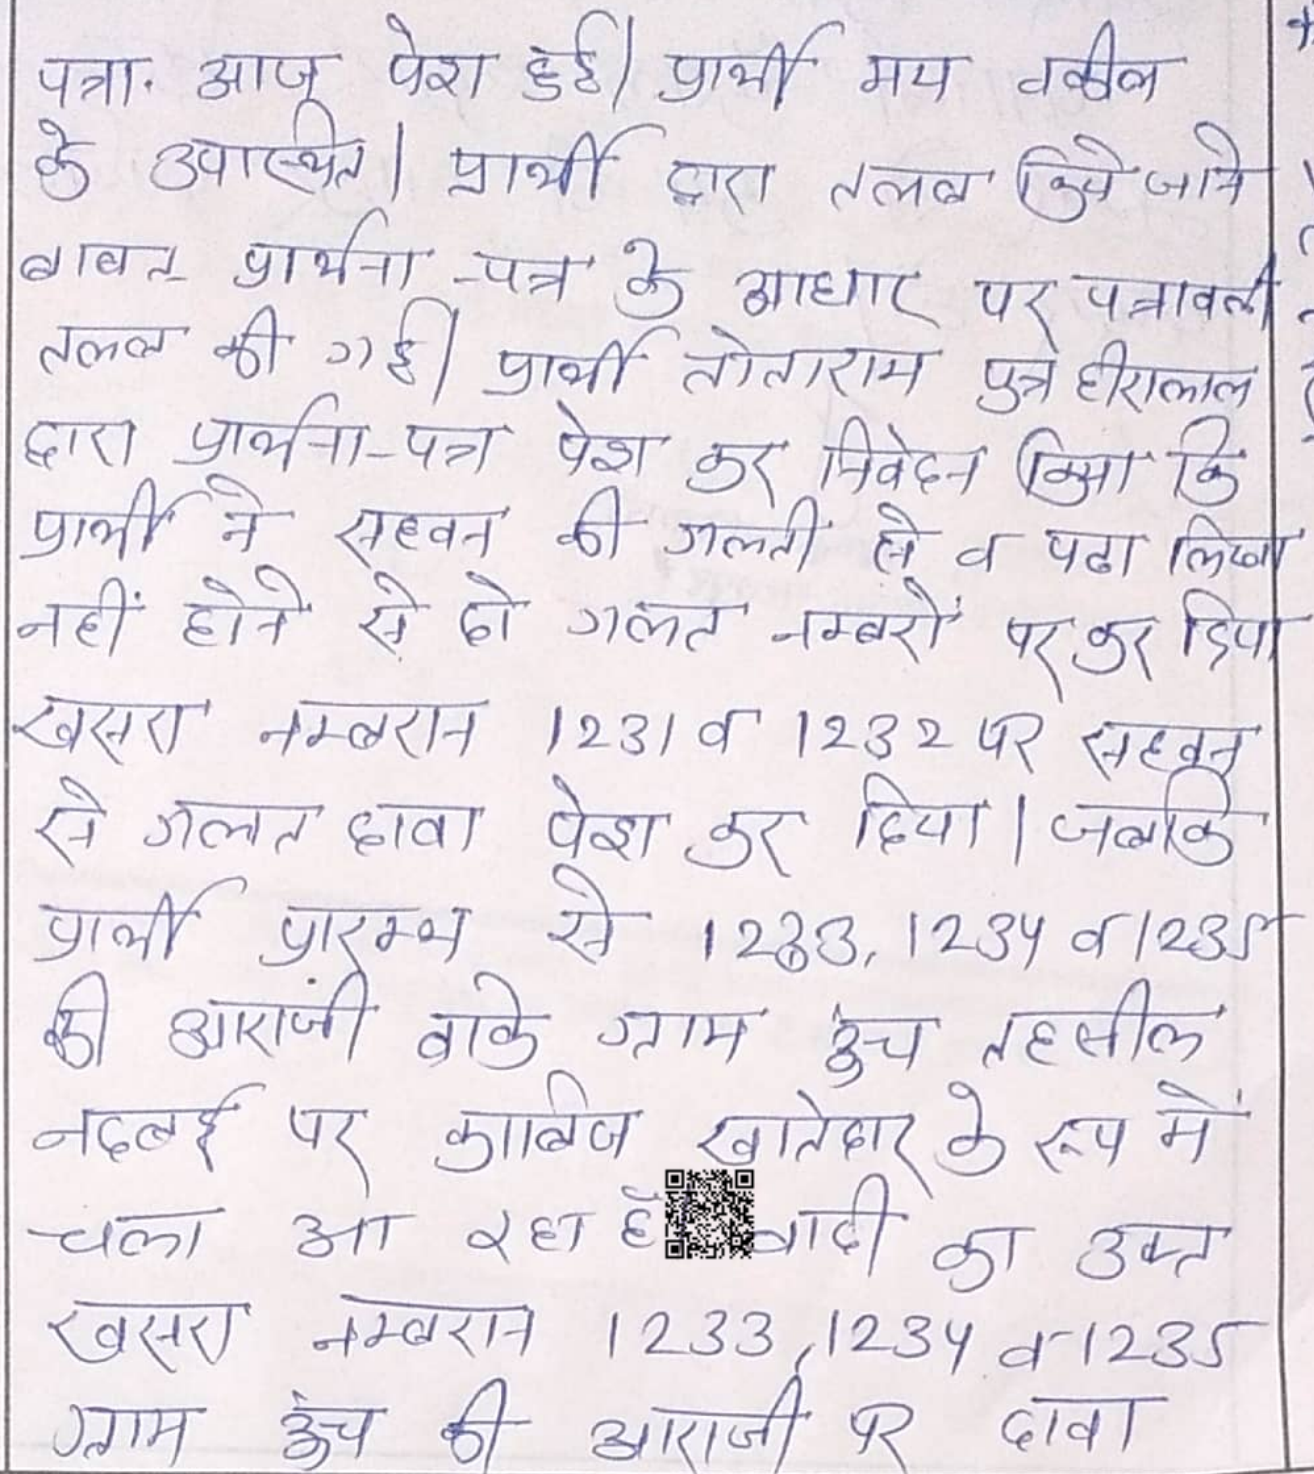 पत्रा. आज पेश हुई। प्रार्थी मय वकील
के उपास्थित। प्रार्थी द्वारा तलब किये जाने
बावत प्रार्थना-पत्र के आधार पर पत्रावली
तलब की गई। प्रार्थी तोताराम पुत्र हीरालाल
द्वारा प्रार्थना-पत्र पेश कर निवेदन किया कि
प्रार्थी ने सहवन की गलती से व पढा लिखा
नहीं होने से दो गलत नम्बरों पर कर दिया
खसरा नम्बरान 1231 व 1232 पर सहवन
से गलत दावा पेश कर दिया। जबकि
प्रार्थी प्रारम्भ से 1233, 1234 व 1235
की आराजी वाके ग्राम ऊंच तहसील
नदबई पर काबिज खातेदार के रूप में
चला आ रहा है वादी का उक्त
खसरा नम्बरान 1233, 1234 व 1235
ग्राम ऊंच की आराजी पर दावा